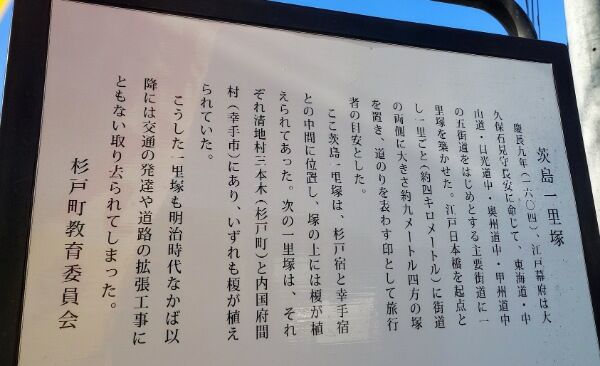 茨島一里塚
慶長九年(一六〇四)、江戸幕府は大
久保石見守長安に命じて、東海道・中
山道・日光道中・奥州道中・甲州道中
の五街道をはじめとする主要街道に一
里塚を築かせた。江戸日本橋を起点と
し一里ごと(約四キロメートル)に街道
の両側に大きさ約九メートル四方の塚
を置き、道のりを表わす印として旅行
者の目安とした。
ここ茨島一里塚は、杉戸宿と幸手宿
との中間に位置し、塚の上には榎が植
えられてあった。次の一里塚は、それ
ぞれ清地村三本木(杉戸町)と内国府間
村(幸手市)にあり、いずれも榎が植え
られていた。
こうした一里塚も明治時代なかば以
降には交通の発達や道路の拡張工事に
ともない取り去られてしまった。
杉戸町教育委員会